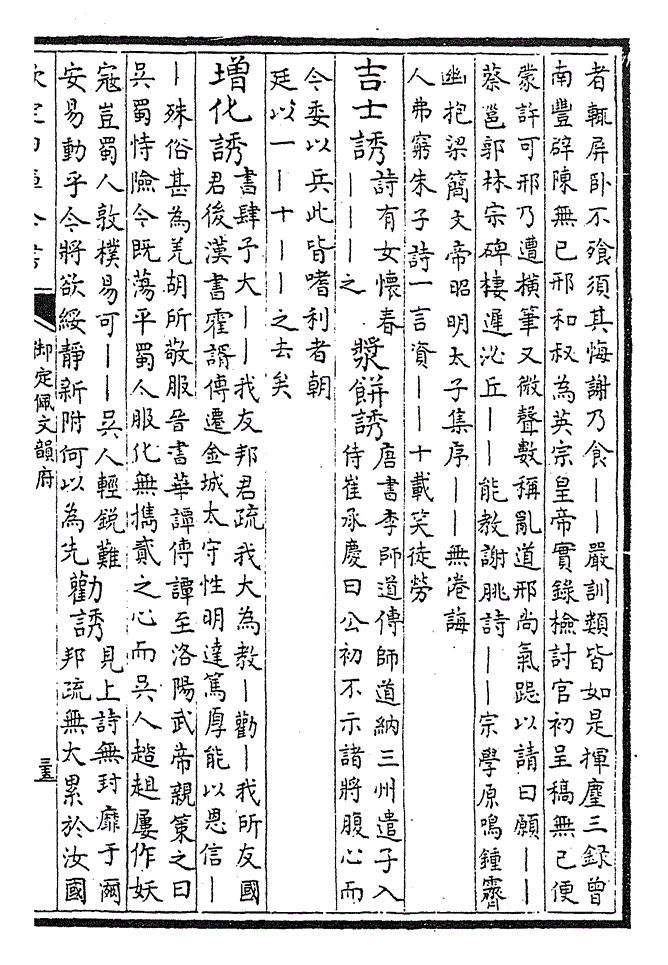 者輒屏卧不飱須其悔謝乃食——嚴訓類皆如是揮麈三錄曾
南豐辟陳無已邢和叔為英宗皇帝實錄檢討官初呈稿無已便
蒙許可邢乃遭橫筆又微聲數稱亂道邢尚氣跽以請曰願——
蔡邕郭林宗碑棲遲泌丘——能教謝朓詩——宗學原鳴鍾霽
幽抱梁簡文帝昭明太子集序——無倦誨
人弗窮朱子詩一言資——十載笑徒勞
吉士誘
詩有女懷春
———之
漿餅誘
唐書李師道傳師道納三州遣子入
侍崔承慶曰公初不示諸將腹心而
今委以兵此皆嗜利者朝
廷以一—十——之去矣
增化誘
書肆予大——我友邦君疏我大為教—勸—我所友國
君後漢書霍諝傳遷金城太守性明達篤厚能以恩信—
—殊俗甚為羌胡所敬服晉書華譚傳譚至洛陽武帝親策之曰
吳蜀恃險今既蕩平蜀人服化無攜貳之心而吳人趑趄屢作妖
寇豈蜀人敦樸易可——吳人輕銳難
安易動乎今將欲綏靜新附何以為先
勸誘
見上詩無封靡于爾
邦疏無大累於汝國
御定佩文韻府